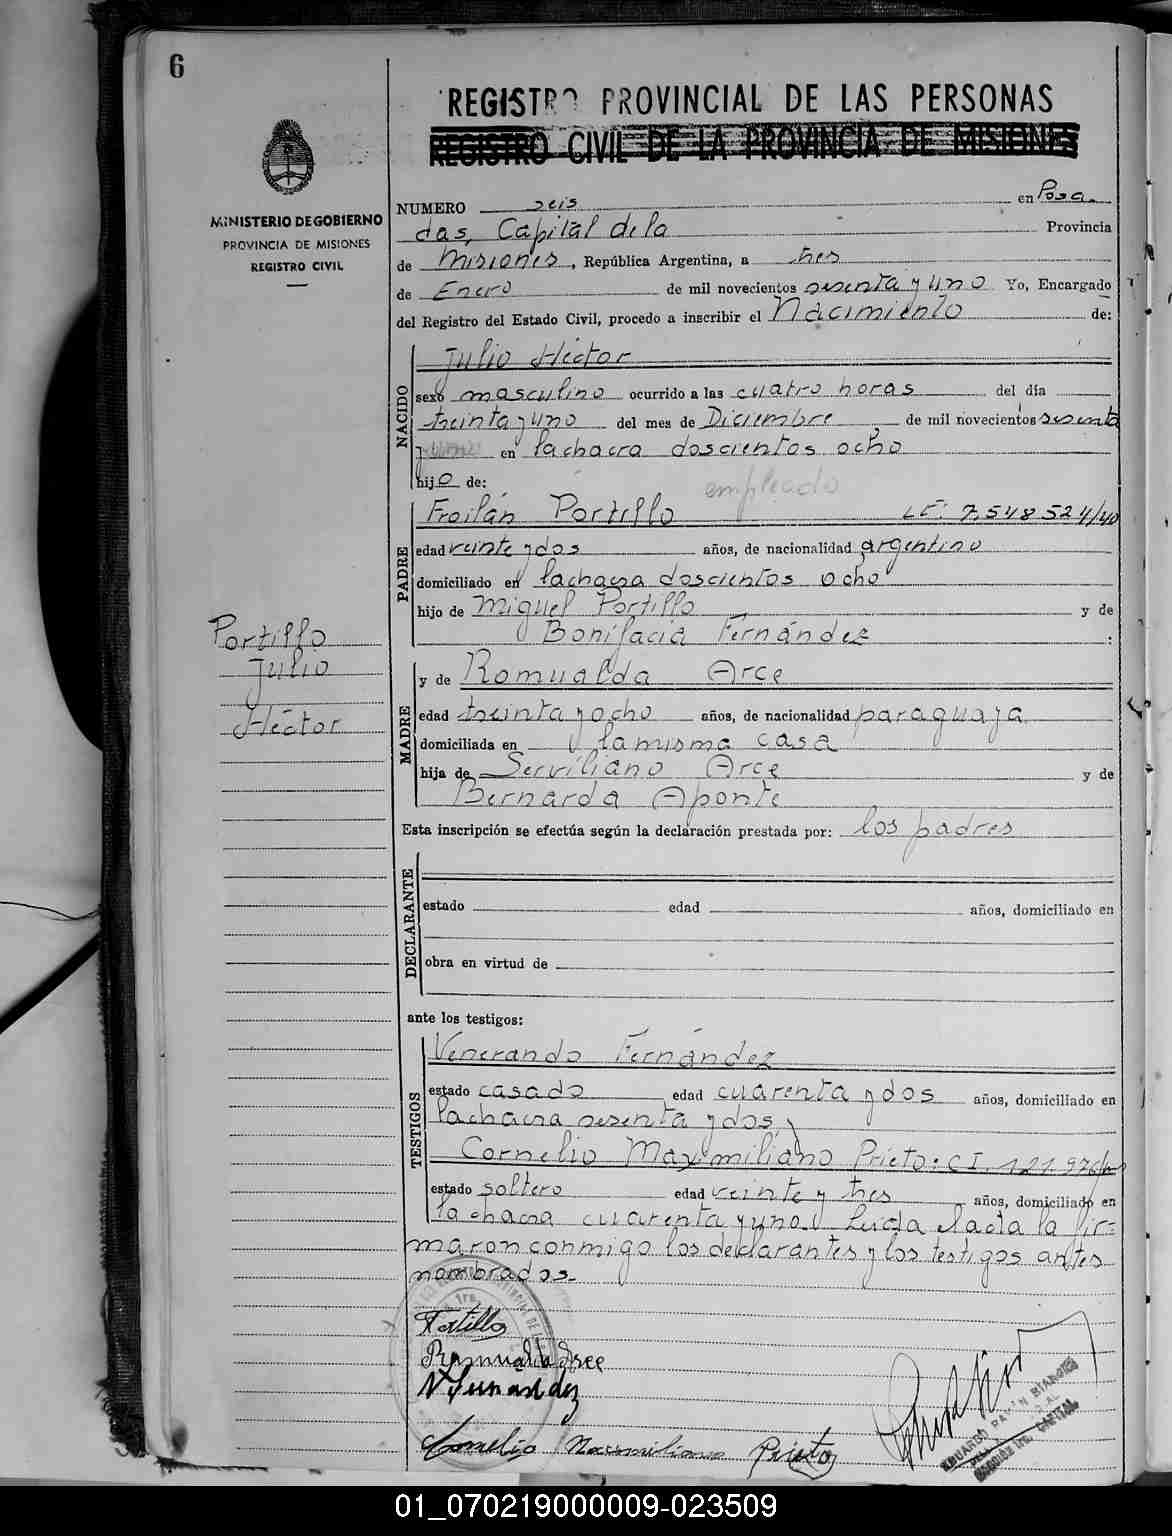 6
REGISTRO PROVINCIAL DE LAS PERSONAS
REGISTRO CIVIL DE LA PROVINCIA DE MISIONES
MINISTERIO DE GOBIERNO
PROVINCIA DE MISIONES
REGISTRO CIVIL
NUMERO seis en Posa-
das, Capital de la Provincia
de Misiones, República Argentina, a tres
de Enero de mil novecientos sesenta y uno Yo, Encargado
del Registro del Estado Civil, procedo a inscribir el Nacimiento de:
NACIDO
Julio Héctor
sexo masculino ocurrido a las cuatro horas del día
treinta y uno del mes de Diciembre de mil novecientos sesenta
en la chacra doscientos ocho
hijo de:
empleado
PADRE
Froilán Portillo LE: 7.548524/40
edad veinte y dos años, de nacionalidad argentino
domiciliado en la chacra doscientos ocho
hijo de Miguel Portillo y de
Bonifacia Fernández :
Portillo
Julio
Héctor
MADRE
y de Romualda Arce
edad treinta y ocho años, de nacionalidad paraguaya
domiciliada en la misma casa
hija de Serviliano Arce y de
Bernarda Aponte
Esta inscripción se efectúa según la declaración prestada por: los padres
DECLARANTE
estado edad años, domiciliado en
obra en virtud de
ante los testigos:
TESTIGOS
Venerando Fernández
estado casado edad cuarenta y dos años, domiciliado en
la chacra sesenta y dos, y
Cornelio Maximiliano Prieto: CI. 121.976
estado soltero edad veinte y tres años, domiciliado en
la chacra cuarenta y uno. Leída el acta la fir=
maron conmigo los declarantes y los testigos antes
nombrados.-
Portillo
Romualda Arce
V Fernández
Cornelio Maximiliano Prieto
EDUARDO
CAPITAL
01_070219000009-023509